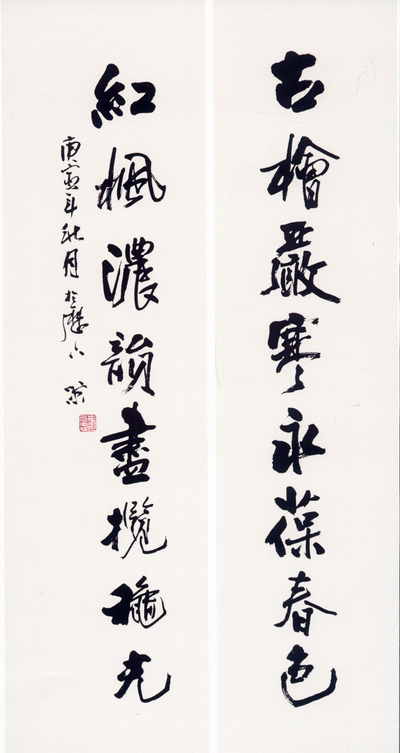 古檜嚴寒永葆春色
紅楓濃韻盡攬穐光
庚寅年秋月於